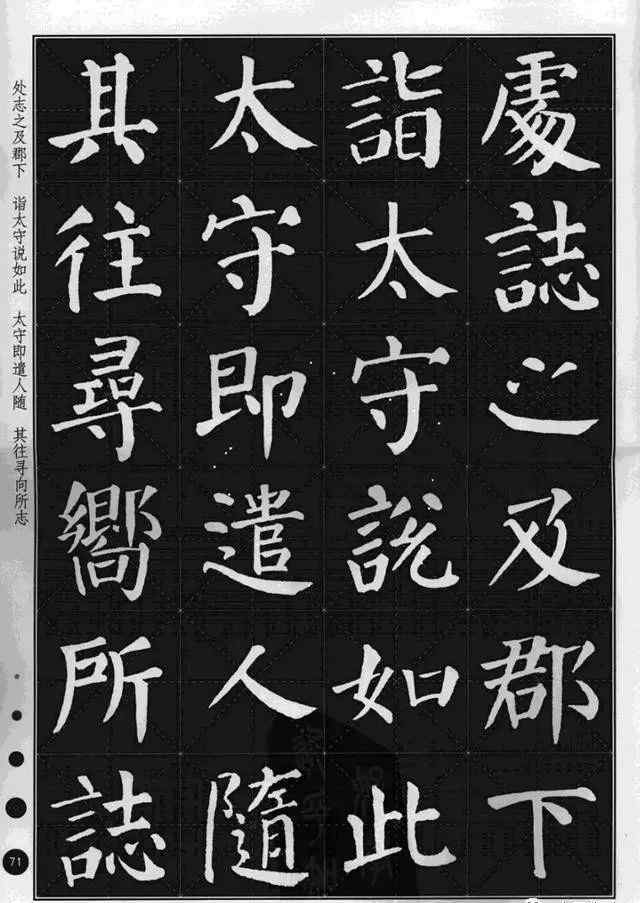 處誌之及郡下
詣太守說如此
太守即遣人隨
其往尋嚮所誌
处志之及郡下 诣太守说如此 太守即遣人随 其往寻向所志
71